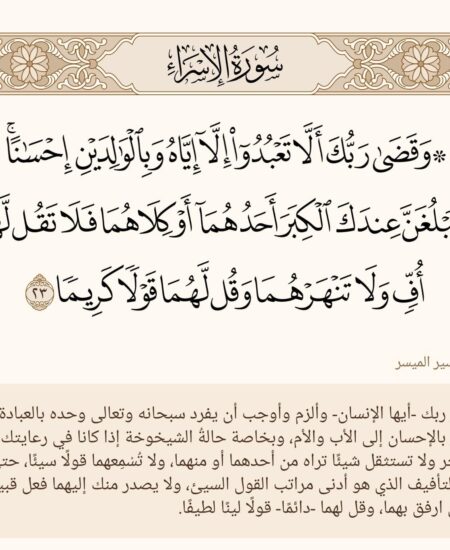 سُورَةُ الإِسْرَاءِ
۞ وَقَضَىٰ رَبُّكَ أَلَّا تَعْبُدُوٓاْ إِلَّآ إِيَّاهُ وَبِٱلْوَٰلِدَيْنِ إِحْسَٰنًاۚ
يَبْلُغَنَّ عِندَكَ ٱلْكِبَرَ أَحَدُهُمَآ أَوْ كِلَاهُمَا فَلَا تَقُل
أُفّٖ وَلَا تَنْهَرْهُمَا وَقُل لَّهُمَا قَوْلٗا كَرِيمٗا ٢٣
الميسر
ربك -أيها الإنسان- وألزم وأوجب أن يفرد سبحانه وتعالى وحده بالعبادة
بالإحسان إلى الأب والأم، وبخاصة حالةُ الشيخوخة إذا كانا في رعايتك
ولا تستثقل شيئًا تراه من أحدهما أو منهما، ولا تُسْمِعهما قولًا سيئًا،
التأفيف الذي هو أدنى مراتب القول السيئ، ولا يصدر منك إليهما فعل
ارفق بهما، وقل لهما -دائمًا- قولًا لينًا لطيفًا.